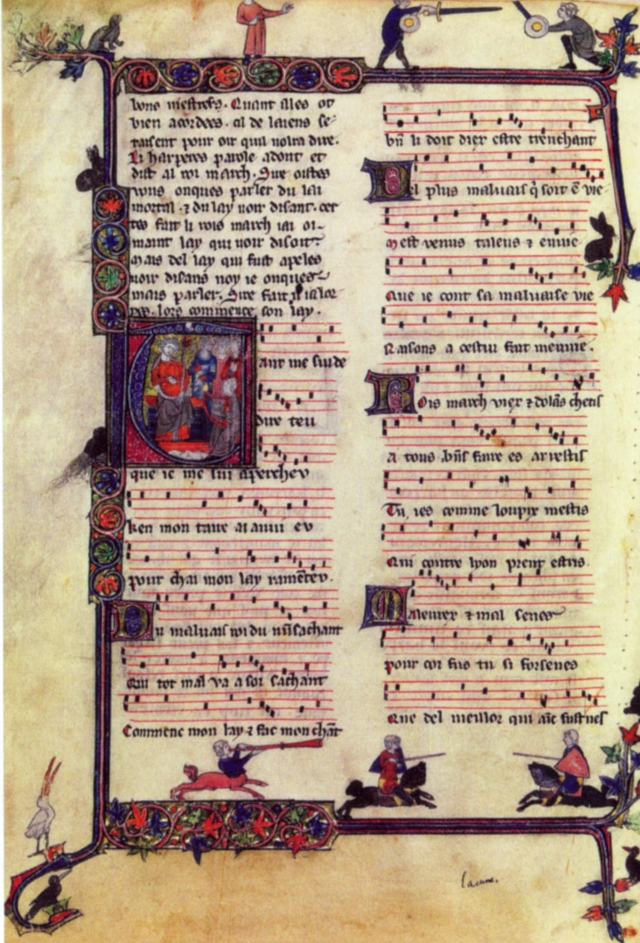 vons mestrés. Quant illes ot
bien acordees. cil de laiens se
taisent pour oir quil voira dire.
Li harperes parole adont et
dist al roi march. Sire oistes
vous onques parler du lai
mortal. ⁊ du lay voir disant. cer
tes fait li rois march iai oi
maint lay qui voir disoit.
Mais del lay qui fust apeles
voir disans noy ie onques
mais parler. Sire fait
lors commence son lay.
ant me sui de
dire teu
que ie me sui aperchev
ken mon taire ai anui ev
pour chai mon lay ramētev.
Du malvais roi du nūsachant
Qui tot mal va a soi sachant
Commenc mon lay ⁊ fac mon chāt
bn̄ li doit dier estre trenchant
el plus malvais q̄ soit ē vie
Mest venus talens ⁊ envie
Que ie cont sa malvaise vie
Raisons a cestui fait menvie.
Rois march vier ⁊ dolās chetis
A tous bn̄s faire es arrestis
Tu ies comme loupix mestis
Qui contre lyon prent estris.
Maleurex ⁊ mal senes
pour coi fus tu si forsenes
Que del meillor qui aīc fust nes
lacune.